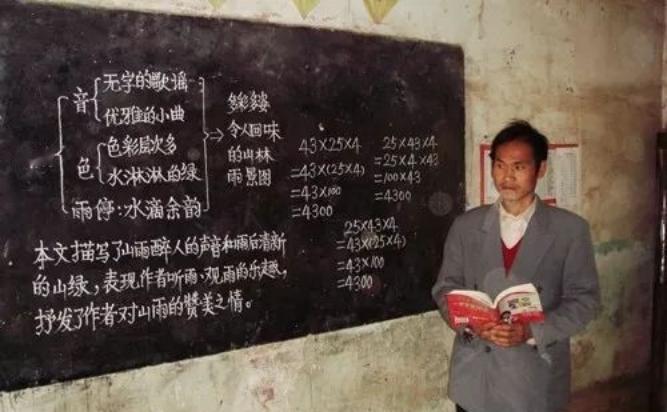 音
无字的歌谣
优雅的小曲
色
色彩层次多
水淋淋的绿
雨停:水滴余韵
多彩多姿
令人回味
的山林
雨景图
43×25×4
=43×(25×4)
=43×100
=4300
25×43×4
=25×4×43
=100×43
=4300
25×43×4
=43×(25×4)
=43×100
=4300
本文描写了山雨醉人的声音和雨后清新
的山绿,表现作者听雨、观雨的乐趣,
抒发了作者对山雨的赞美之情。